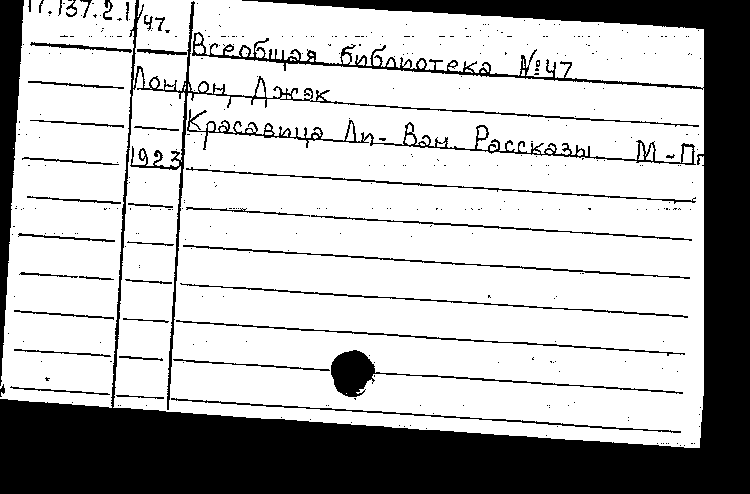 17.137.2.1/47.
Всеобщая библиотека №47
Лондон, Джэк.
Красавица Ли-Ван. Рассказы. М-П
1923